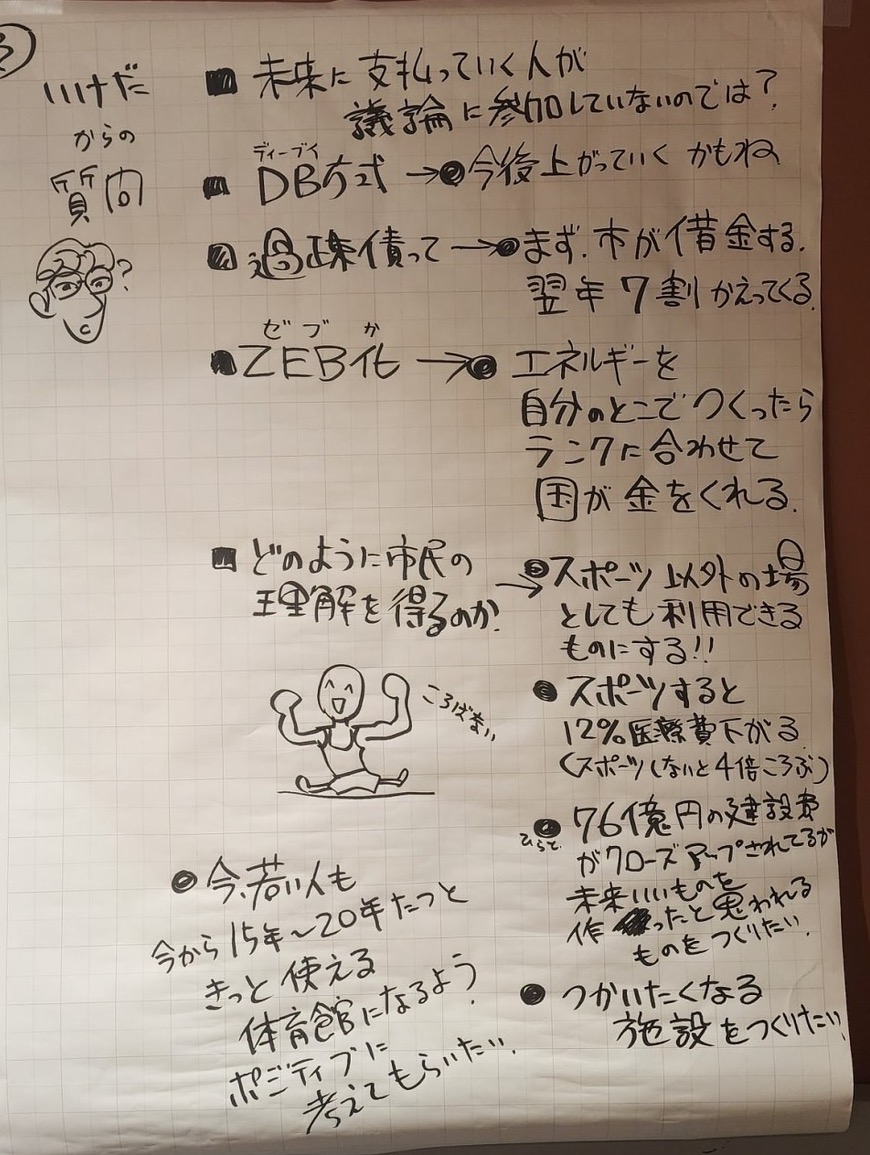 いけだ
からの
質問
?
■ 未来に支払っていく人が
議論に参加していないのでは?
ディーブイ
■ DB方式 →●今後上がっていく かもね
■ 過疎債って →●まず.市が借金する.
翌年7割かえってくる.
ゼブか
■ ZEB化 →● エネルギーを
自分のとこでつくったら
ランクに合わせて
国が金をくれる.
■ どのように市民の
理解を得るのか?
→●スポーツ以外の場
としても利用できる
ものにする!!
ころばない
● スポーツすると
12%医療費下がる
(スポーツしないと4倍ころぶ)
● 76億円の建設費
がクローズアップされてるが
未来いいものを
作ったと思われる
ものをつくりたい.
● 今、若い人も
今から15年〜20年たつと
きっと使える
体育館になるよう
ポジティブに
考えてもらいたい.
● つかいたくなる
施設をつくりたい